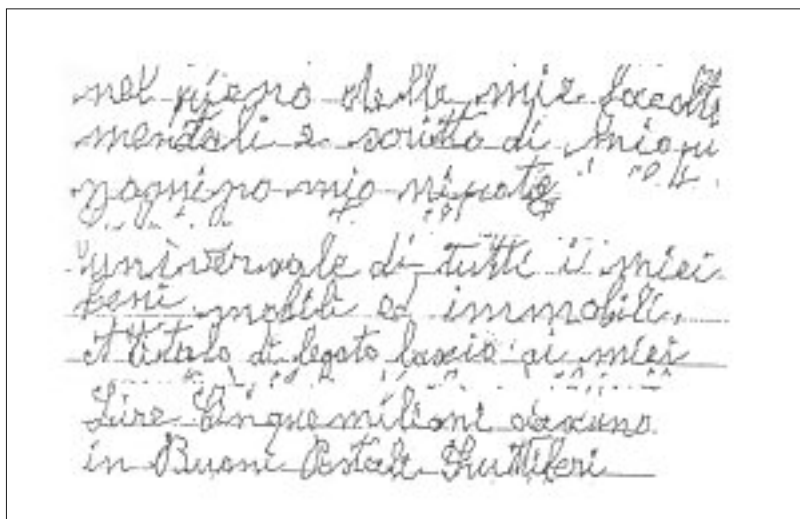 nel pieno delle mie facoltà
mentali e scritto di mio pu
gno nomino mio nipote
universale di tutti i miei
beni mobili ed immobili.
A titolo di legato lascio ai miei
Lire Cinquemilioni ciascuno
in Buoni Postali Fruttiferi